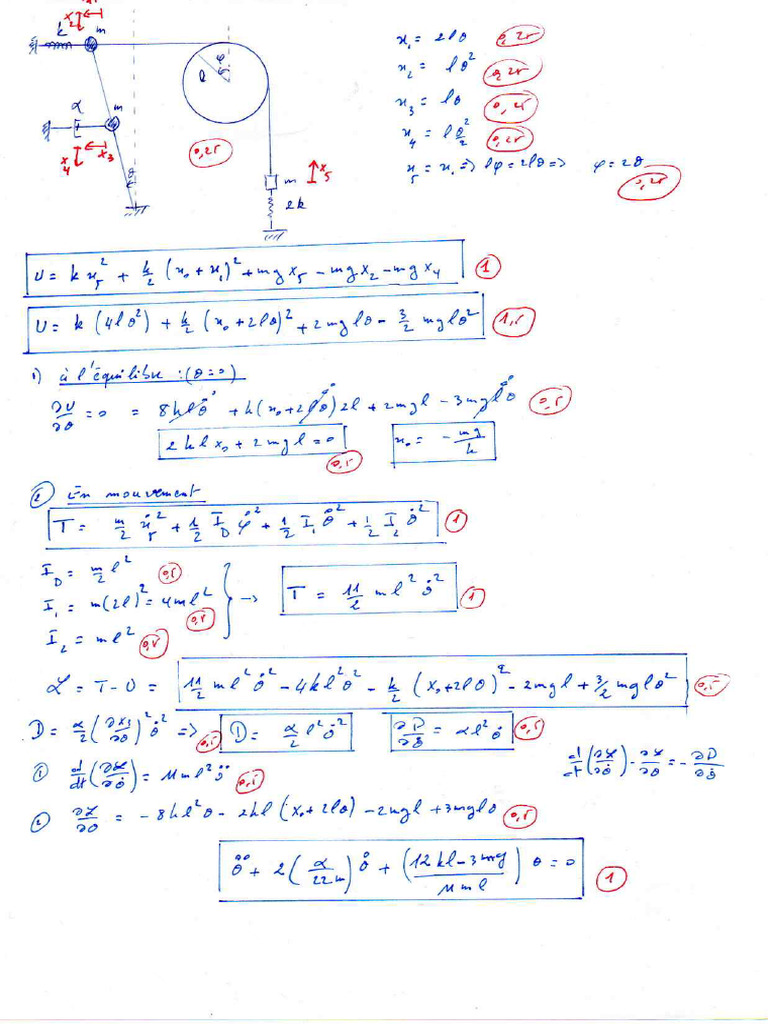 x₂
k
m
x₁ = 2lθ 0,25
x₂ = lθ² 0,25
l φ
x₃ = lθ 0,25
α m
x₄ = lθ²/2 0,25
x₃
x₄
0,25
x₅ = x₁ => lφ = 2lθ => φ = 2θ 0,25
θ
m x₅
2k
U = k x₅² + k/2 (x₀ + x₁)² + mg x₅ - mg x₂ - mg x₄ 1
U = k (4lθ²) + k/2 (x₀ + 2lθ)² + 2mglθ - 3/2 mglθ² 1,5
1) à l'équilibre : (θ=0)
∂U/∂θ = 0 = 8klθ + k(x₀ + 2lθ)2l + 2mgl - 3mglθ 0,5
2klx₀ + 2mgl = 0 0,5 x₀ = - mg/k
② En mouvement
T = m/2 ẋ₅² + 1/2 I_D φ̇² + 1/2 I₁ θ̇² + 1/2 I₂ θ̇² 1
I_D = m/2 l² 0,5
I₁ = m(2l)² = 4ml² 0,5 → T = 11/2 ml² θ̇² 1
I₂ = ml² 0,5
ℒ = T - U = 11/2 ml² θ̇² - 4kl²θ² - k/2 (x₀ + 2lθ)² - 2mgl + 3/2 mglθ² 0,5
D = α/2 (∂x₃/∂θ)² θ̇² => 0,5 D = α/2 l² θ̇² ∂D/∂θ̇ = αl² θ̇ 0,5
① d/dt(∂ℒ/∂θ̇) = 11ml² θ̈ 0,5 d/dt(∂ℒ/∂θ̇) - ∂ℒ/∂θ = - ∂D/∂θ̇
② ∂ℒ/∂θ = -8kl²θ - 2kl (x₀ + 2lθ) - 2mgl + 3mglθ 0,5
θ̈ + 2(α/22m) θ̇ + (12kl - 3mg/11ml) θ = 0 1